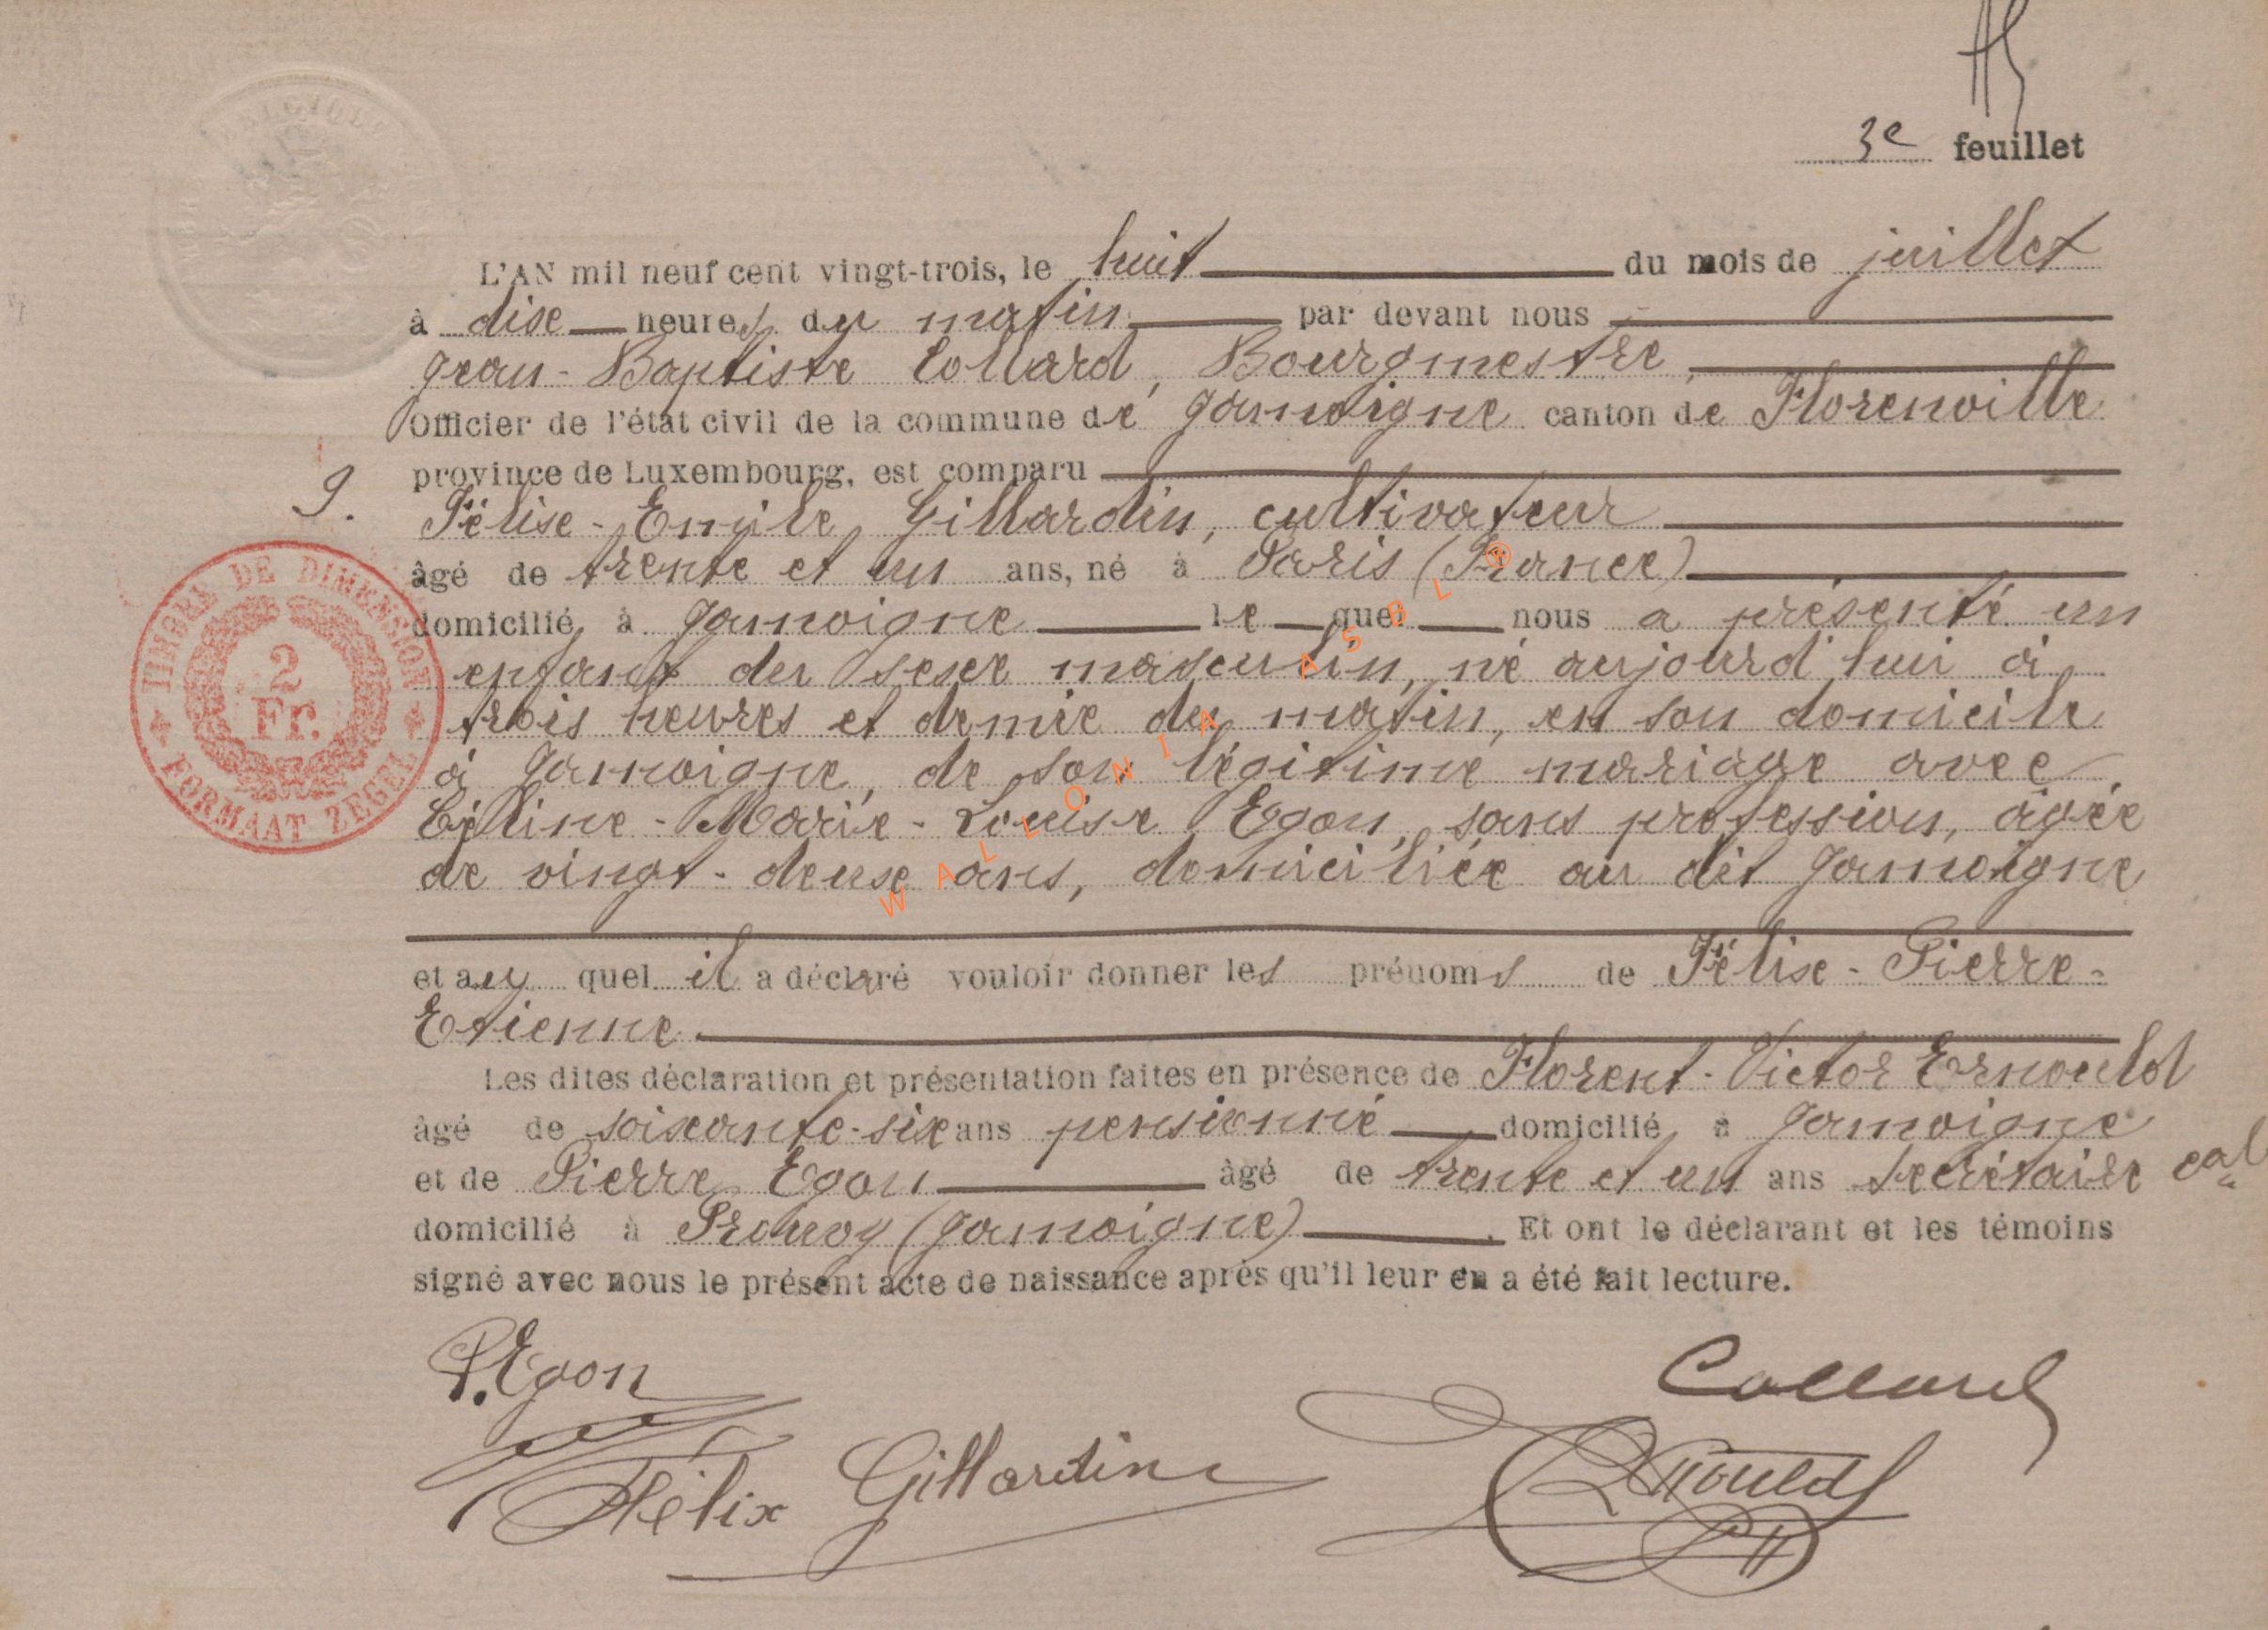 3e feuillet
L'AN mil neuf cent vingt-trois, le huit du mois de juillet
à dix heures du matin par devant nous
Jean-Baptiste Collard, Bourgmestre,
Officier de l'état civil de la commune de Jamoigne canton de Florenville
province de Luxembourg, est comparu
9.
Félix-Emile Gillardin, cultivateur
âgé de trente et un ans, né à Paris (France)
domicilié à Jamoigne lequel nous a présenté un
enfant du sexe masculin, né aujourd'hui à
trois heures et demie du matin, en son domicile
à Jamoigne, de son légitime mariage avec
Céline-Marie-Louise Egon, sans profession, âgée
de vingt-deux ans, domiciliée au dit Jamoigne
et auquel il a déclaré vouloir donner les prénoms de Félix-Pierre-
Etienne.
Les dites déclaration et présentation faites en présence de Florent-Victor Ernould
âgé de soixante-six ans pensionné domicilié à Jamoigne
et de Pierre Egon âgé de trente et un ans secrétaire cal
domicilié à Prouvy (Jamoigne). Et ont le déclarant et les témoins
signé avec nous le présent acte de naissance après qu'il leur en a été fait lecture.
P. Egon
Collard
Félix Gillardin
Ernould
TIMBRE DE DIMENSION
2
Fr.
FORMAAT ZEGEL
WALLONIA ASBL ®